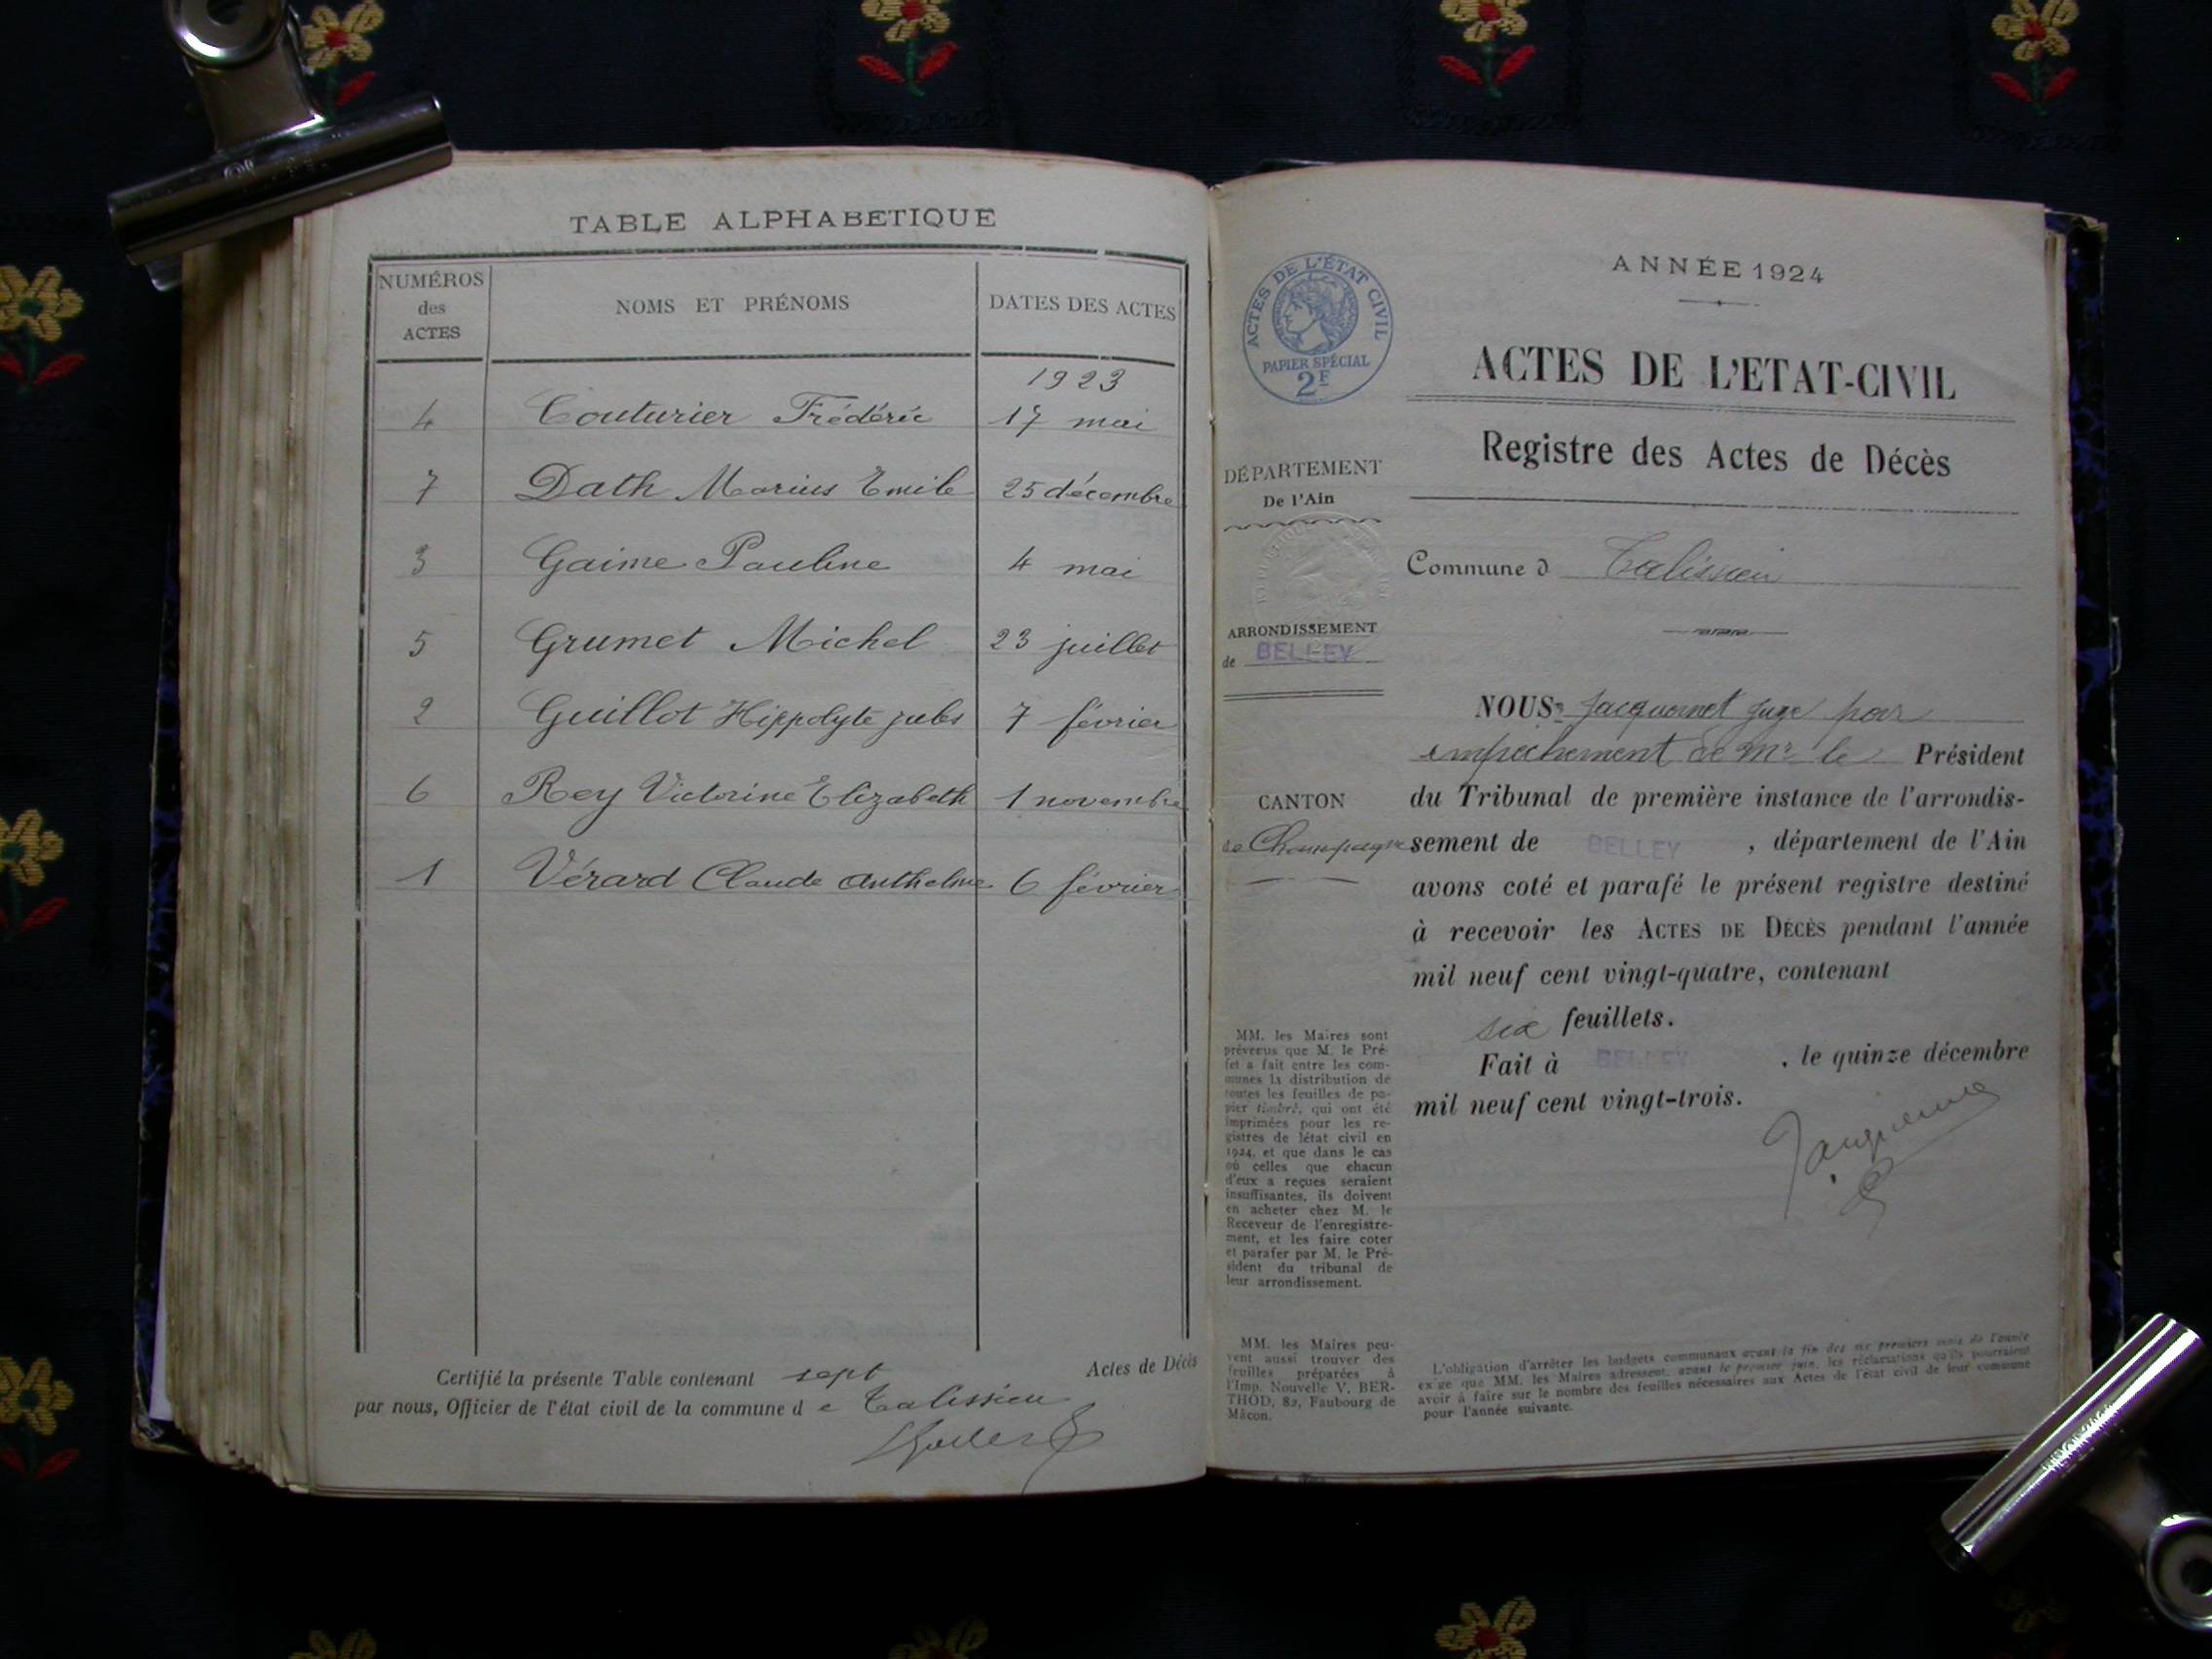 TABLE ALPHABETIQUE
NUMÉROS
des
ACTES
NOMS ET PRÉNOMS
DATES DES ACTES
1923
4 Couturier Frédéric 17 mai
7 Dath Marius Emile 25 décembre
3 Gaime Pauline 4 mai
5 Grumet Michel 23 juillet
2 Guillot Hippolyte jules 7 février
6 Rey Victorine Elizabeth 1 novembre
1 Vérard Claude Anthelme 6 février
Certifié la présente Table contenant sept Actes de Décès
par nous, Officier de l'état civil de la commune d e Talissieu
ACTES DE L'ÉTAT CIVIL
PAPIER SPÉCIAL
2F
DÉPARTEMENT
De l'Ain
ARRONDISSEMENT
de BELLEY
CANTON
de Champagne
MM. les Maires sont
prévenus que M. le Pré-
fet a fait entre les com-
munes la distribution de
toutes les feuilles de pa-
pier timbré, qui ont été
imprimées pour les re-
gistres de létat civil en
1924, et que dans le cas
où celles que chacun
d'eux a reçues seraient
insuffisantes, ils doivent
en acheter chez M. le
Receveur de l'enregistre-
ment, et les faire coter
et parafer par M. le Pré-
sident du tribunal de
leur arrondissement.
MM. les Maires peu-
vent aussi trouver des
feuilles préparées à
l'Imp. Nouvelle V. BER-
THOD, 82, Faubourg de
Mâcon.
ANNÉE 1924
ACTES DE L'ETAT-CIVIL
Registre des Actes de Décès
Commune d Talissieu
NOUS, Jacquemet juge par
empêchement de Mr le Président
du Tribunal de première instance de l'arrondis-
sement de BELLEY, département de l'Ain
avons coté et parafé le présent registre destiné
à recevoir les ACTES DE DÉCÈS pendant l'année
mil neuf cent vingt-quatre, contenant
six feuillets.
Fait à BELLEY, le quinze décembre
mil neuf cent vingt-trois.
L'obligation d'arrêter les budgets communaux avant la fin des six premiers mois de l'année
exige que MM. les Maires adressent, avant le premier juin, les réclamations qu'ils pourraient
avoir à faire sur le nombre des feuilles nécessaires aux Actes de l'état civil de leur commune
pour l'année suivante.